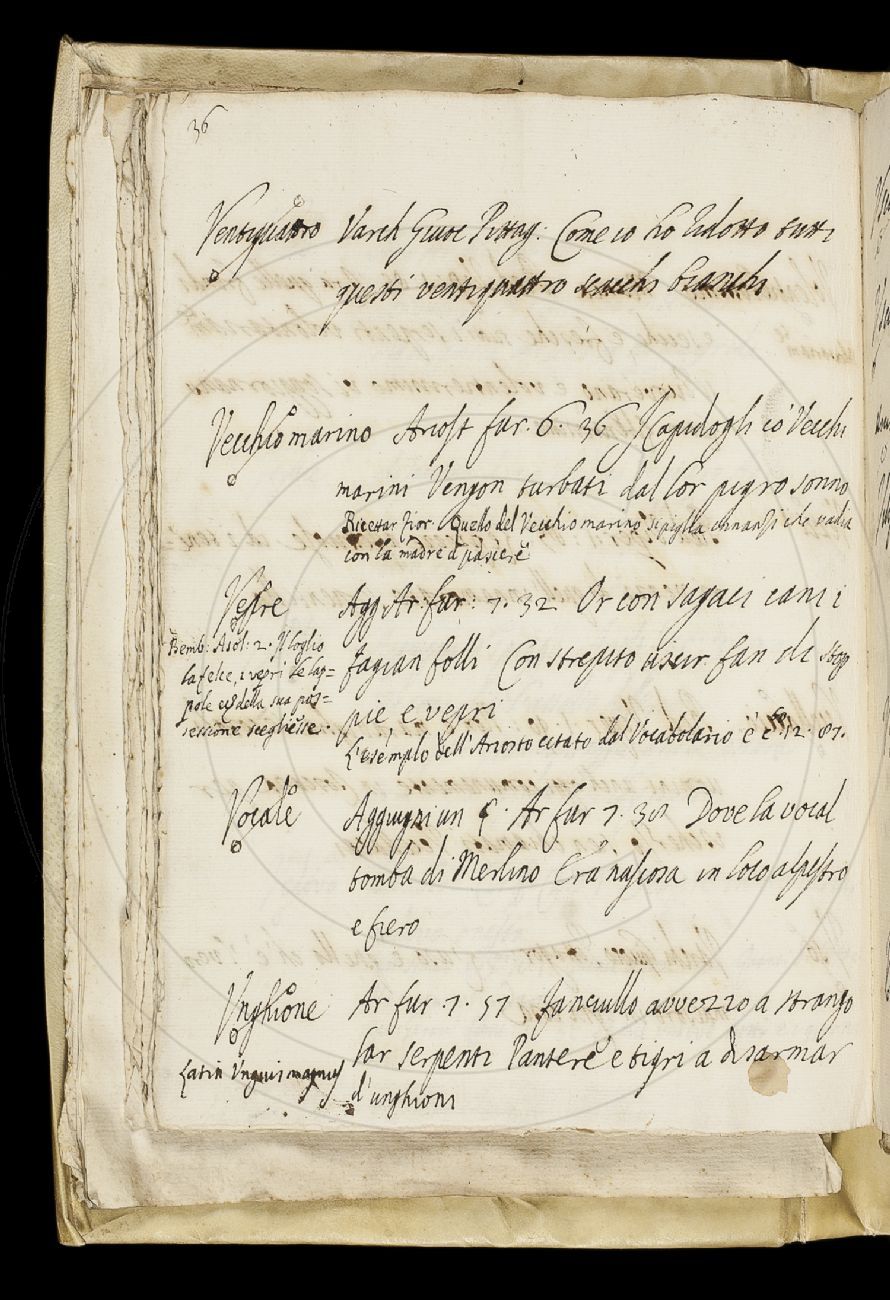 36
Ventiquattro Varch Giuoc Pittag. Come io ho ridotto tutti
questi ventiquattro scacchi bianchi
Vecchio marino Ariost fur. 6. 36 I Capidogli co' Vecchi
marini Vengon turbati dal lor pigro sonno
Ricettar fior. Quello del Vecchio marino si piglia innanzi che vadia
con la madre a pascere
Vepre Agg Ar. fur: 7. 32 Or con sagaci cani i
fagian folli Con strepito uscir fan di stop
pie e vepri
L'esemplo dell'Ariosto citato dal Vocabolario è c. 12. 87.
Bemb: Asol: 2. Il loglio
la felce, i vepri le lap=
pole della sua pos=
sessione scegliesse.
Vocale Aggiugni un §. Ar fur 7. 38 Dove la vocal
tomba di Merlino Era nascosa in loco alpestro
e fiero
Unghione Ar fur. 7. 57 Fanciullo avvezzo a strango
lar serpenti Pantere e tigri a disarmar
d'unghioni
Latin Unguis magnus